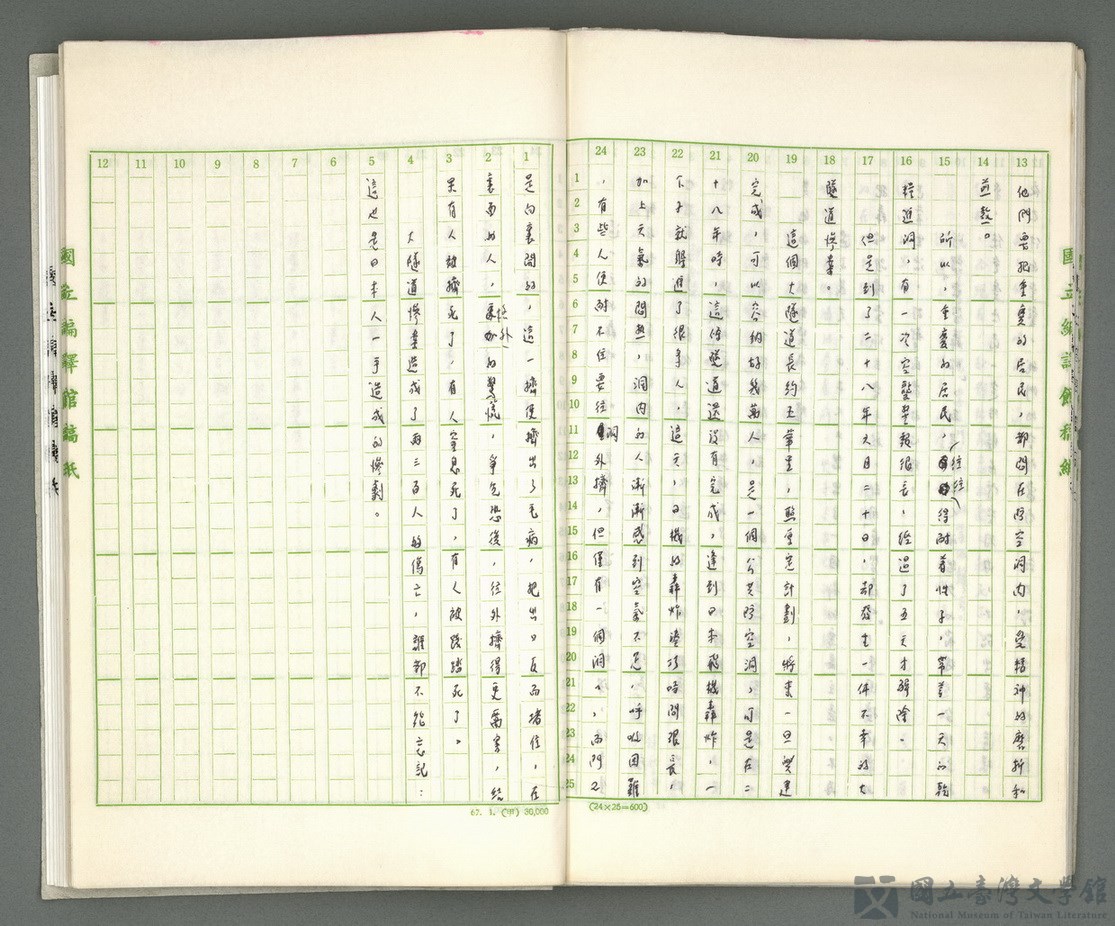 13 14 15 16 17 18 19 20 21 22 23 24
他們要把重慶的居民，都悶在防空洞內，受精神的磨折和
煎熬。
所以，重慶的居民，往往得耐着性子，帶着一天的乾
糧進洞，有一次空襲警報很長，經過了五天才解除。
但是到了二十八年六月二十日，却發生一件不幸的大
隧道慘案。
這個大隧道長約五華里，照重定計劃，將來一旦興建
完成，可以容納好幾萬人，是一個公共防空洞，可是在二
十八年時，這條隧道還沒有完成，逢到日本飛機轟炸，一
下子就歸進了很多人，這天，日機的轟炸持續時間很長，
加上天氣的悶熱，洞內的人漸漸感到空氣不足，呼吸困難
，有些人便耐不住要往洞外擠，但僅有一個洞口，而門又
1 2 3 4 5 6 7 8 9 10 11 12
是向裏開的，這一擠便擠出了毛病，把出口反而堵住，在
裏面的人，更加的驚慌，爭先恐後，往外擠得更厲害，結
果有人被擠死了，有人窒息死了，有人被踐踏死了。
大隧道慘案造成了兩三百人的傷亡，誰都不能忘記：
這也是日本人一手造成的慘劇。
1 2 3 4 5 6 7 8 9 10 11 12 13 14 15 16 17 18 19 20 21 22 23 24 25
(24×25=600)
67. 1. (印) 30,000
國立編譯館稿紙
國立編譯館稿紙
國立臺灣文學館
National Museum of Taiwan Literature